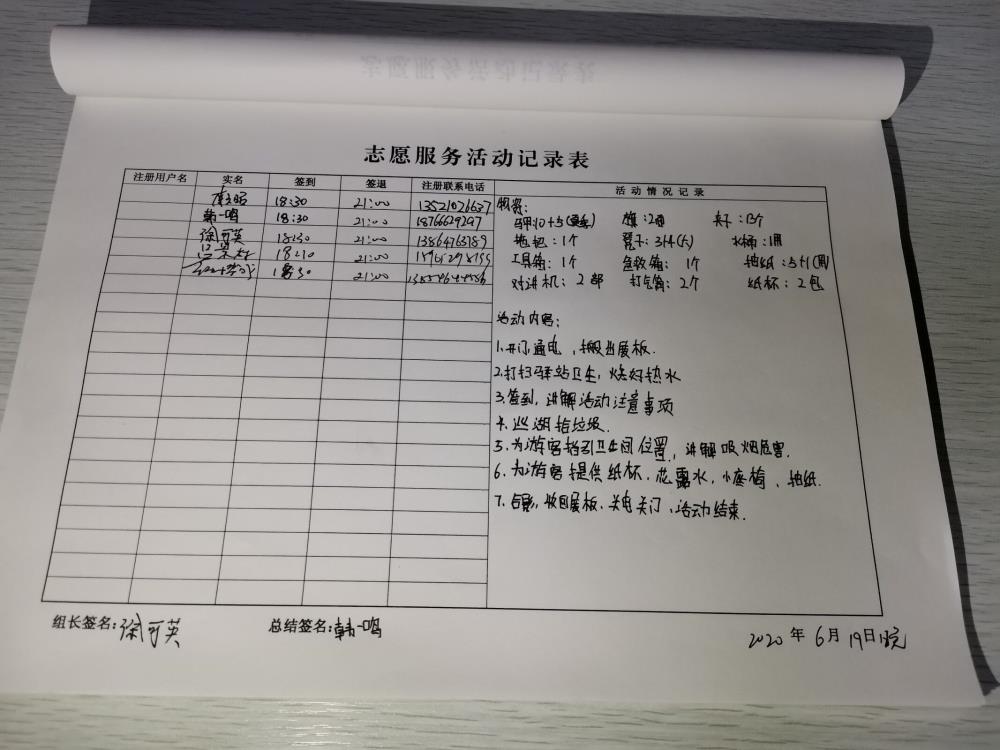 志愿服务活动记录表
注册用户名 实名 签到 签退 注册联系电话 活动情况记录
18:30 21:00 13521026637
韩一鸣 18:30 21:00 18766629297
徐可英 18:30 21:00 13864763789
21:00
21:00
物资:
旗:2面 夹子:13个
拖把:1个 水桶:1用
工具箱:1个 急救箱:1个 抽纸:
对讲机:2部 打气筒:2个 纸杯:2包
活动内容:
1.开门通电,搬出展板.
2.打扫驿站卫生,烧好热水
3.签到,讲解活动注意事项
4.巡湖捡垃圾.
5.为游客指引卫生间位置,讲解吸烟危害.
6.为游客提供纸杯.花露水,小座椅、抽纸.
7.合影,收回展板、关电关门,活动结束.
组长签名:徐可英 总结签名:韩一鸣 2020年6月19日